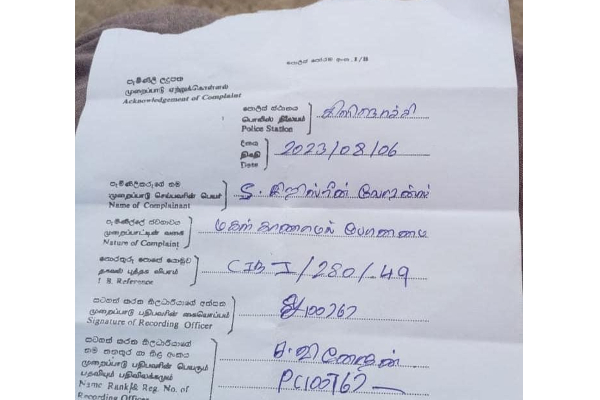 පොලිස් පෝරම අංක. 1/B
පැමිණිලි ලදුපත
முறைப்பாடு ஏற்றுக்கொள்ளல்
Acknowledgement of Complaint
පොලිස් ස්ථානය
பொலிஸ் நிலையம்
Police Station
கிளிநொச்சி
දිනය
திகதி
Date
2023/08/06
පැමිණිලිකරුගේ නම
முறைப்பாடு செய்பவரின் பெயர்
Name of Complainant
S. கிறிஸ்ரின்
පැමිණිල්ලේ ස්වභාවය
முறைப்பாட்டின் வகை
Nature of Complaint
மகள் காணாமல் போனமை
තොරතුරු පොතේ යොමුව
தகவல் புத்தக விபரம்
I. B. Reference
CIB I/280/49
සටහන් කරන නිලධාරියාගේ අත්සන
முறைப்பாடு பதிபவரின் கையொப்பம்
Signature of Recording Officer
100767
සටහන් කරන නිලධාරියාගේ
නම තනතුර හා නිල අංකය
முறைப்பாடு பதிபவரின் பெயரும்
பதவியும் பதிவிலக்கமும்
Name Rank & Reg. No. of
Recording Officer
PC100767